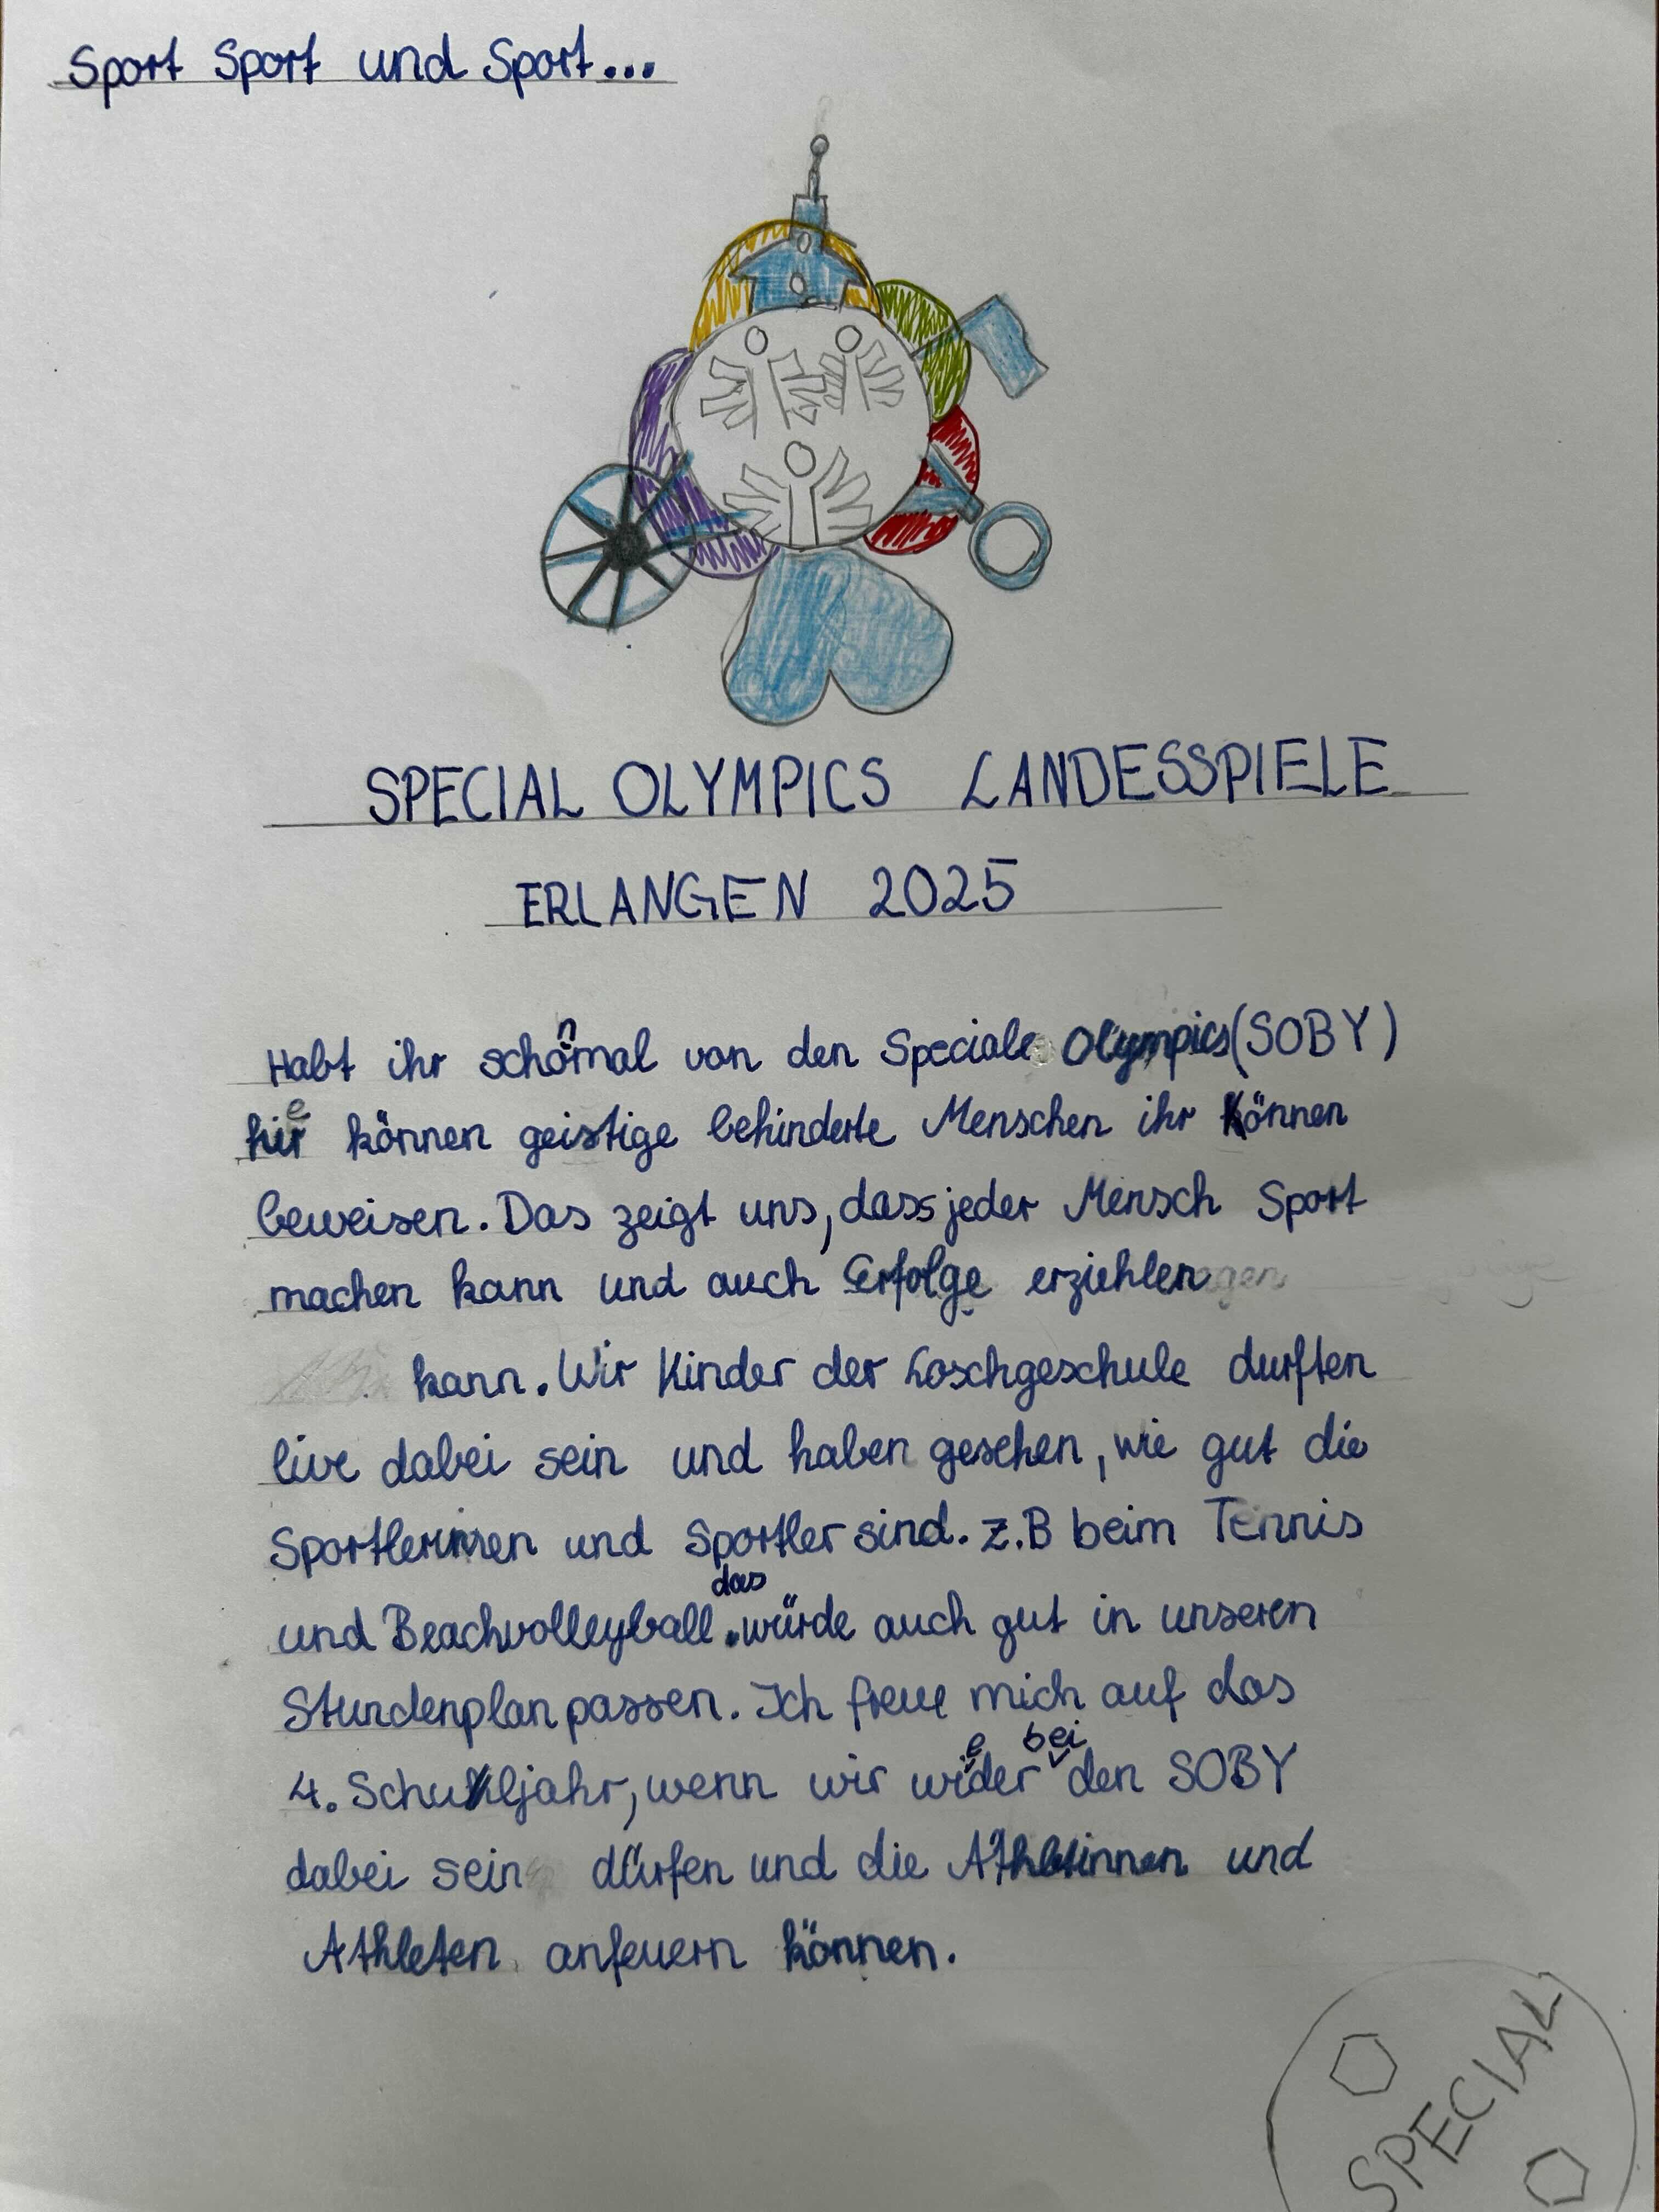 Sport Sport und Sport...
SPECIAL OLYMPICS LANDESSPIELE
ERLANGEN 2025
Habt ihr schonmal von den Speciale Olympics (SOBY)
hier können geistige behinderte Menschen ihr Können
beweisen. Das zeigt uns, dass jeder Mensch Sport
machen kann und auch Erfolge erziehlen
kann. Wir Kinder der Loschgeschule durften
live dabei sein und haben gesehen, wie gut die
Sportlerinnen und Sportler sind. z.B beim Tennis
und Beachvolleyball. das würde auch gut in unseren
Stundenplan passen. Ich freue mich auf das
4. Schuljahr, wenn wir wieder bei den SOBY
dabei sein dürfen und die Athletinnen und
Athleten anfeuern können.
SPECIAL